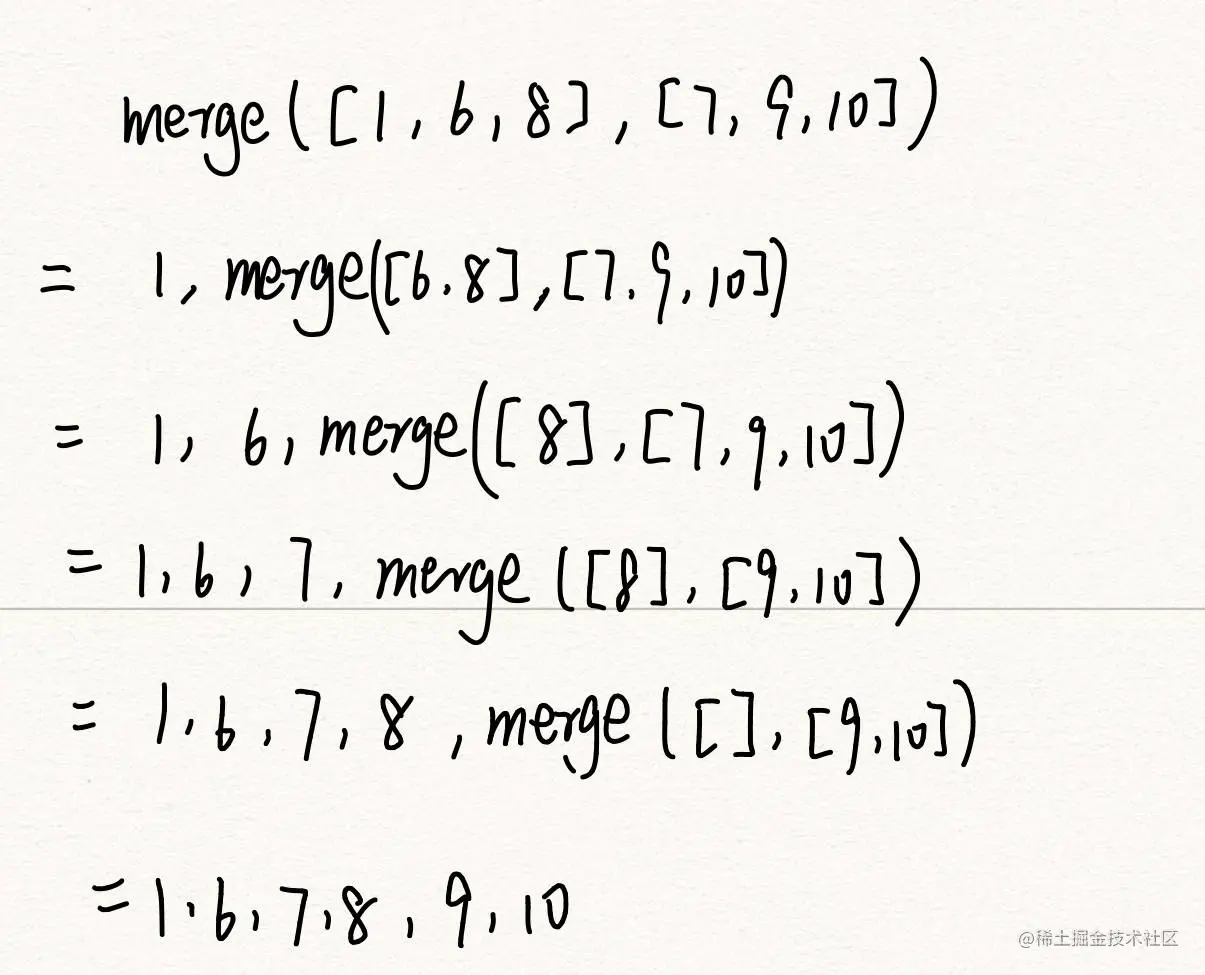 merge([1, 6, 8], [7, 9, 10])
= 1, merge([6.8], [7.9, 10])
= 1, 6, merge([8], [7, 9, 10])
= 1, 6, 7, merge([8], [9, 10])
= 1, 6, 7, 8, merge([], [9, 10])
= 1.6, 7, 8, 9, 10
@稀土掘金技术社区